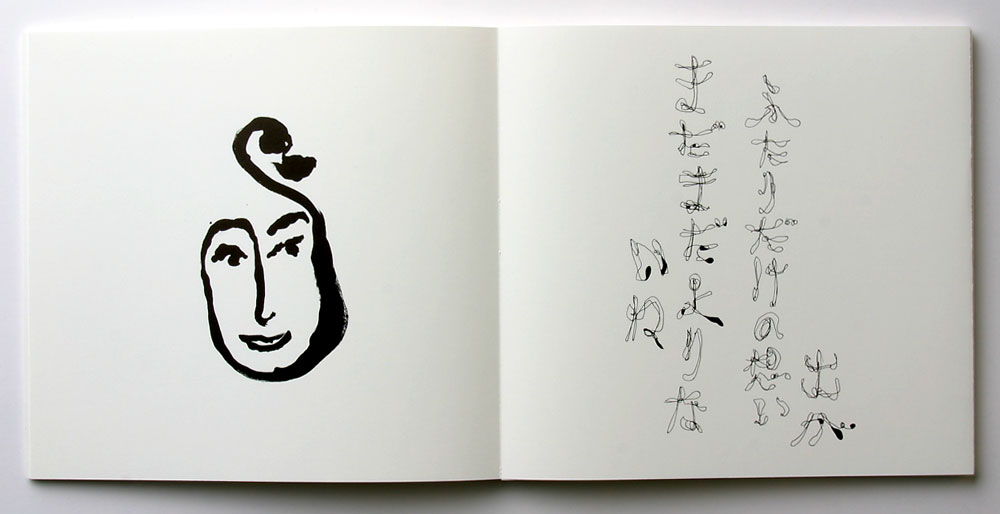 ふたりだけの想い
出が
まだまだ足りな
いわ